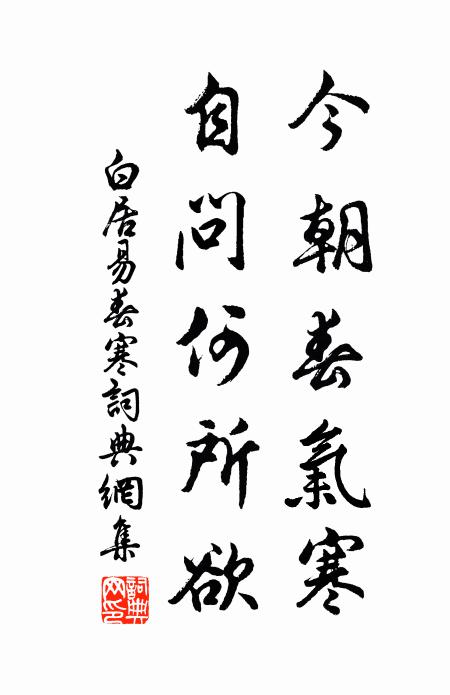 今朝春氣寒
自問何所欲
白居易春寒詞典網集
詞典網印